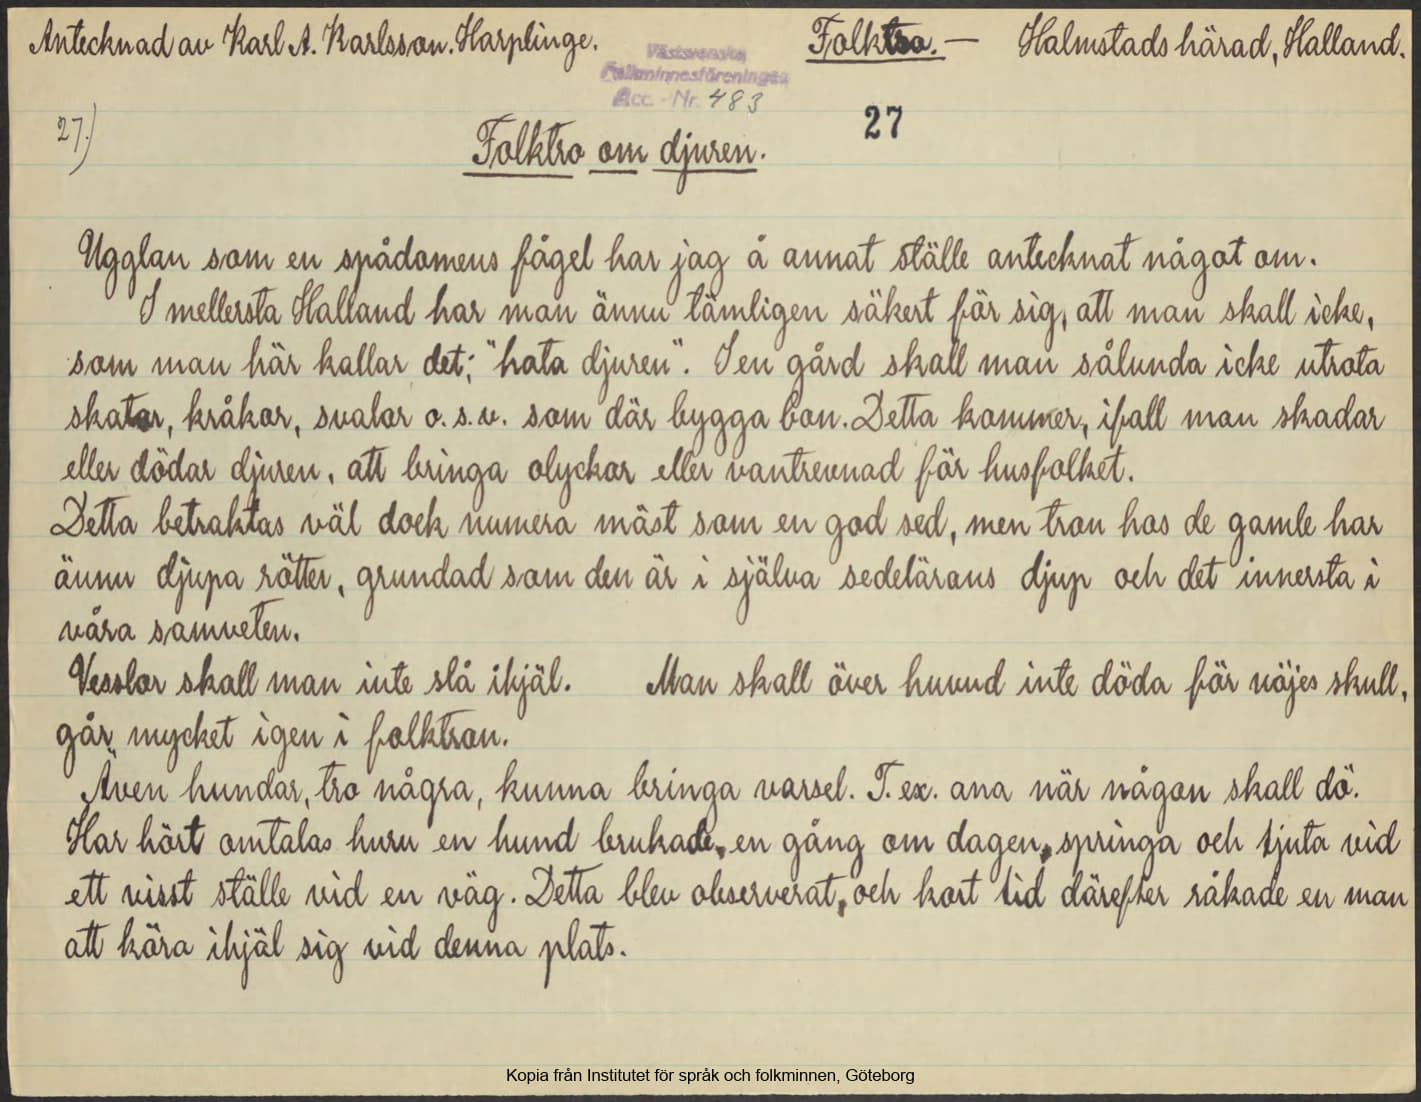 Antecknad av Karl A. Karlsson. Harplinge.
Folktro. — Halmstads härad, Halland.
Västsvenska
Folkminnesföreningen
Acc. - Nr. 483
27.)
27
Folktro om djuren.
Ugglan som en spådomens fågel har jag å annat ställe antecknat något om.
I mellersta Halland har man ännu tämligen säkert för sig, att man skall icke,
som man här kallar det; "hata djuren". I en gård skall man sålunda icke utrota
skator, kråkor, svalor o.s.v. som där bygga bon. Detta kommer, ifall man skadar
eller dödar djuren, att bringa olyckor eller vantrevnad för husfolket.
Detta betraktas väl dock numera mäst som en god sed, men tron hos de gamle har
ännu djupa rötter, grundad som den är i själva sedelärans djup och det innersta i
våra samveten.
Vesslor skall man inte slå ihjäl. Man skall över huvud inte döda för nöjes skull,
går mycket igen i folktron.
Även hundar, tro några, kunna bringa varsel. T. ex. ana när någon skall dö.
Har hört omtalas huru en hund brukade, en gång om dagen, springa och tjuta vid
ett visst ställe vid en väg. Detta blev observerat, och kort tid därefter råkade en man
att köra ihjäl sig vid denna plats.
Kopia från Institutet för språk och folkminnen, Göteborg